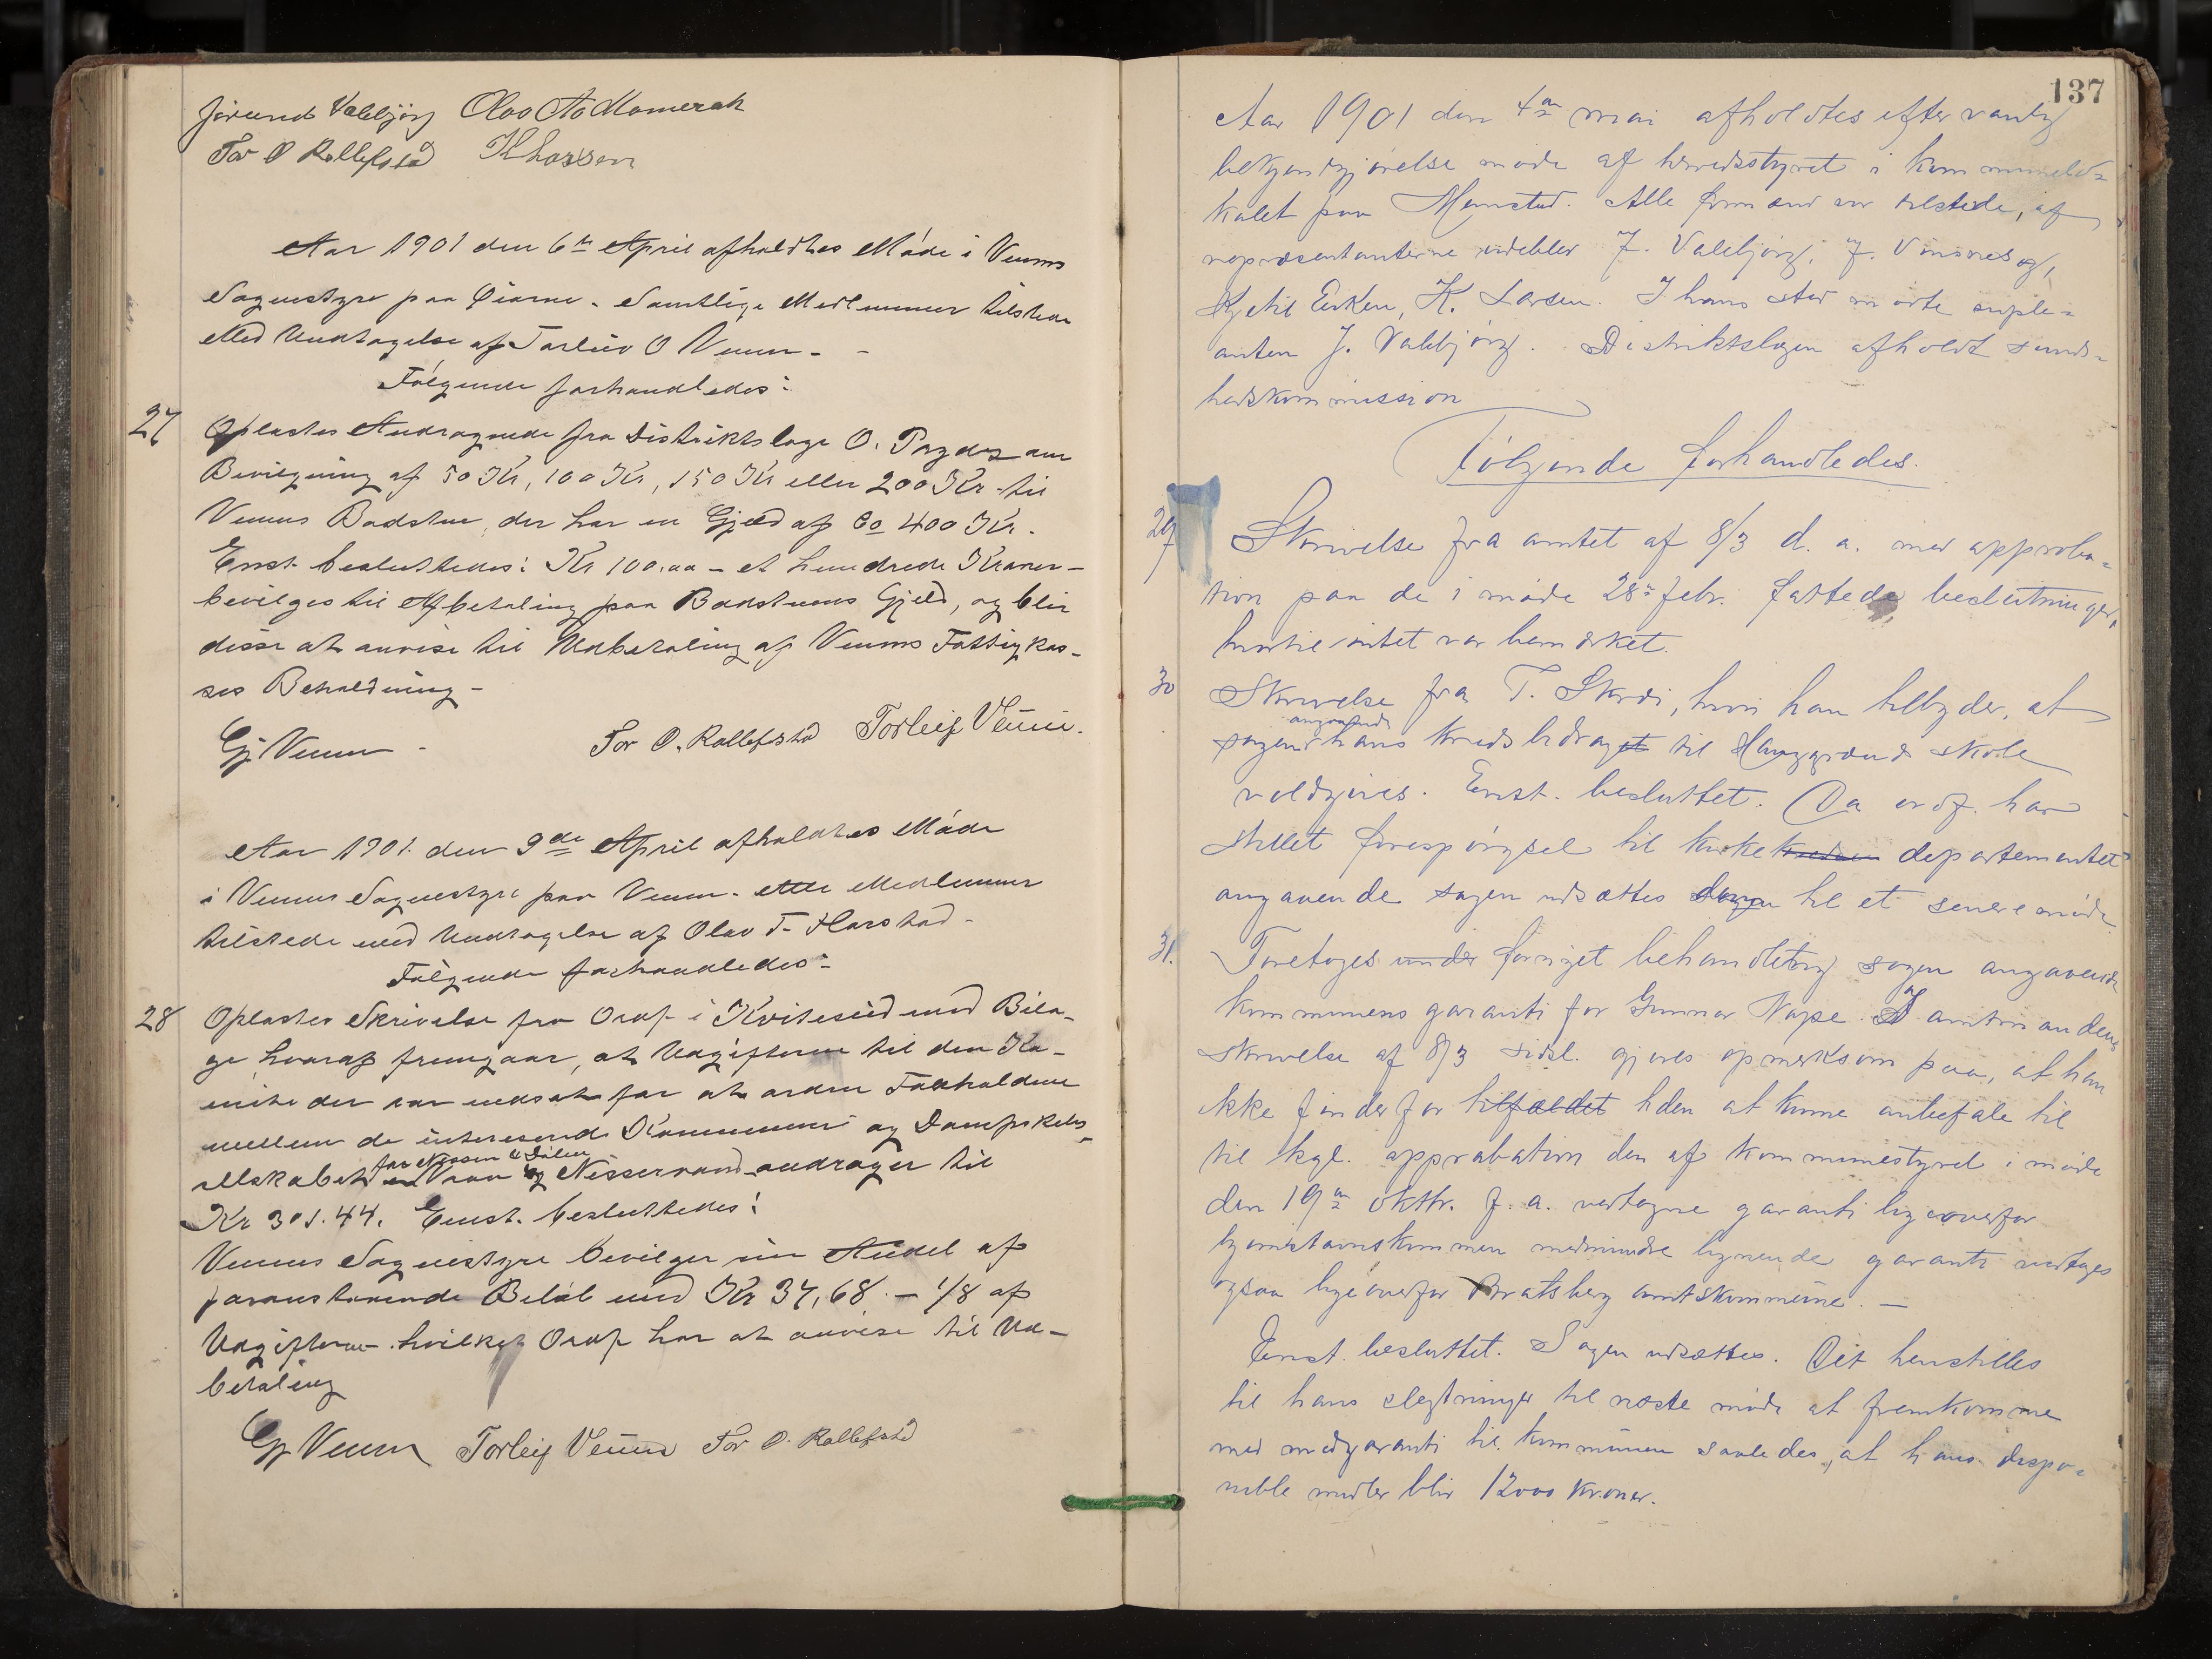 Jørund Valebjørg Olav
Tor O Rollefstad K Larssen
Aar 1901 den 6te April afholdtes Møde i Veums
Sognestyre paa Øiarne. Samtlige Medlemmer tilstede
Med Undtagelse af Torleiv O Veum. –
Følgende forhandledes:
27 Oplæstes Andragende fra Distriktslæge O. om
Bevilgning af 50 Kr, 100 Kr, 150 Kr eller 200 Kr til
Veums Badstue, der har en Gjæld af Ca 400 Kr.
Enst. besluttedes: Kr 100.00 – et hundrede Kroner –
bevilges til Afbetaling paa Badstuens Gjeld, og blir
disse at anvise til Udbetaling af Veums Fattigkas-
ses Beholdning –
Gj Veum – Tor O. Rollefstad Torleif Veum.
Aar 1901 den 9de April afholdtes Møde
i Veums Sognestyre paa Veum. Alle Medlemmer
tilstede med Undtagelse af Olav T. Harstad –
Følgende forhandledes:
28 Oplæstes Skrivelse fra Ordf. i Kviteseid med Bila-
ge, hvoraf fremgaar, at Udgifterne til den Ko-
mite der var nedsat for at ordne Forholdene
mellem de interesserede Kommuner og Dampskibs-
for Nissen &
selskabet Vraa og Nisservand andrager til
Kr 301.44. Enst. besluttedes:
Veums Sognestyre bevilger sin Andel af
foranstaaende Beløb med Kr 37,68. – 1/8 af
Udgifterne – hvilket Ordf har at anvise til Ud-
betaling
Gj Veum Torleif Veum Tor O. Rollefstad
137
Aar 1901 den 4de mai afholdtes efter vanlig
bekjendtgjørelse møde af herredsstyret i kommunelo-
kalet paa Momstad. Alle formænd var tilstede, af
repræsentanterne udeblev J. Valebjørg, J.
Kjetil Eeken, K. Larsen. I hans sted mødte suple-
anten J. Valebjørg. Distriktslægen afholdt sund-
hedskommission
Følgende forhandledes.
29 Skrivelse fra amtet af 8/3 d. a. med approba-
tion paa de i møde 28de febr. fattede beslutninger,
hvortil intet var bemærket.
30 Skrivelse fra T. Skredi, hvori han tilbyder, at
angaaende
sagen hans kredsbidraget til Haugegrend skole
voldgives. Enst. besluttet. Da ordf. har
stillet forespørgsel til kirke departementet
angaaende sagen udsættes til et senere møde
31. Foretoges under fornyet behandling sagen angaaende
kommunens garanti for Gunnar Nape. I amtmandens
skrivelse af 8/3 sidstl. gjøres opmerksom paa, at han
ikke finder for tilfældet tiden at kunne anbefale til
til kgl. approbation den af kommunestyret i møde
den 19de oktbr. f. a. vedtagne garanti ligeoverfor
medmindre lignende garanti vedtages
ogsaa ligeoverfor Bratsberg amtskommune. –
Enst. besluttet. Sagen udsættes. Det henstilles
til hans slegtninger til næste møde at fremkomme
med medgaranti til kommunen saaledes, at hans dispo-
nible midler blir 12000 kroner.